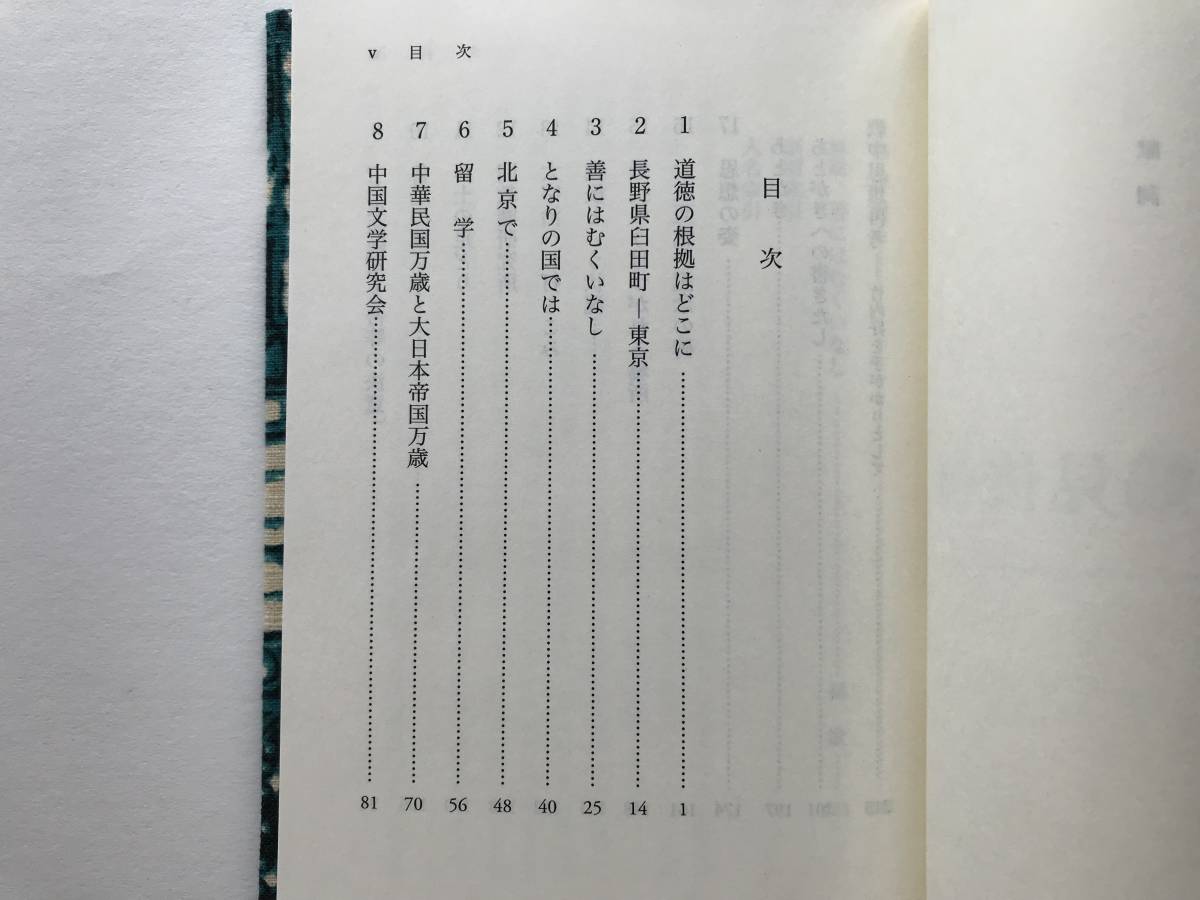 目次
1 道徳の根拠はどこに……………………1
2 長野県臼田町―東京……………………14
3 善にはむくいなし……………………25
4 となりの国では……………………40
5 北京で……………………48
6 留学……………………56
7 中華民国万歳と大日本帝国万歳……………………70
8 中国文学研究会……………………81
v 目次